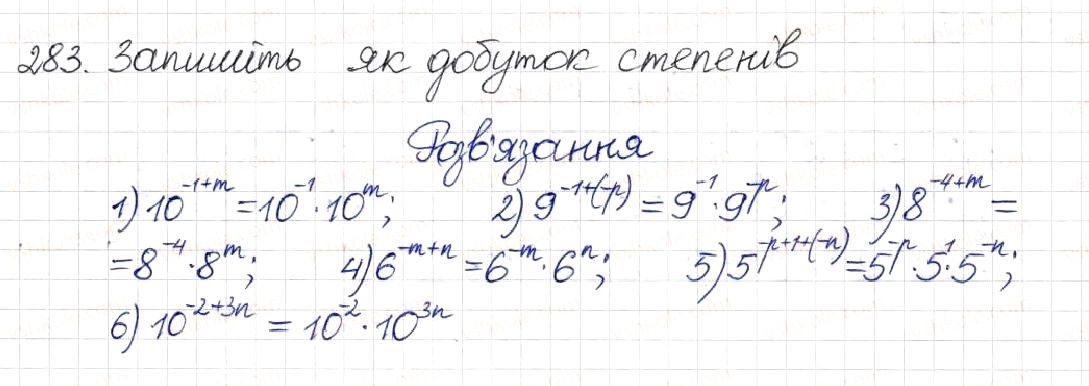 283. Запишіть як добуток степенів
Розв'язання
1) 10^{-1+m} = 10^{-1} · 10^{m}; 2) 9^{-1+(-p)} = 9^{-1} · 9^{-p}; 3) 8^{-4+m} =
= 8^{-4} · 8^{m}; 4) 6^{-m+n} = 6^{-m} · 6^{n}; 5) 5^{-p+1+(-n)} = 5^{-p} · 5^{1} · 5^{-n};
6) 10^{-2+3n} = 10^{-2} · 10^{3n}